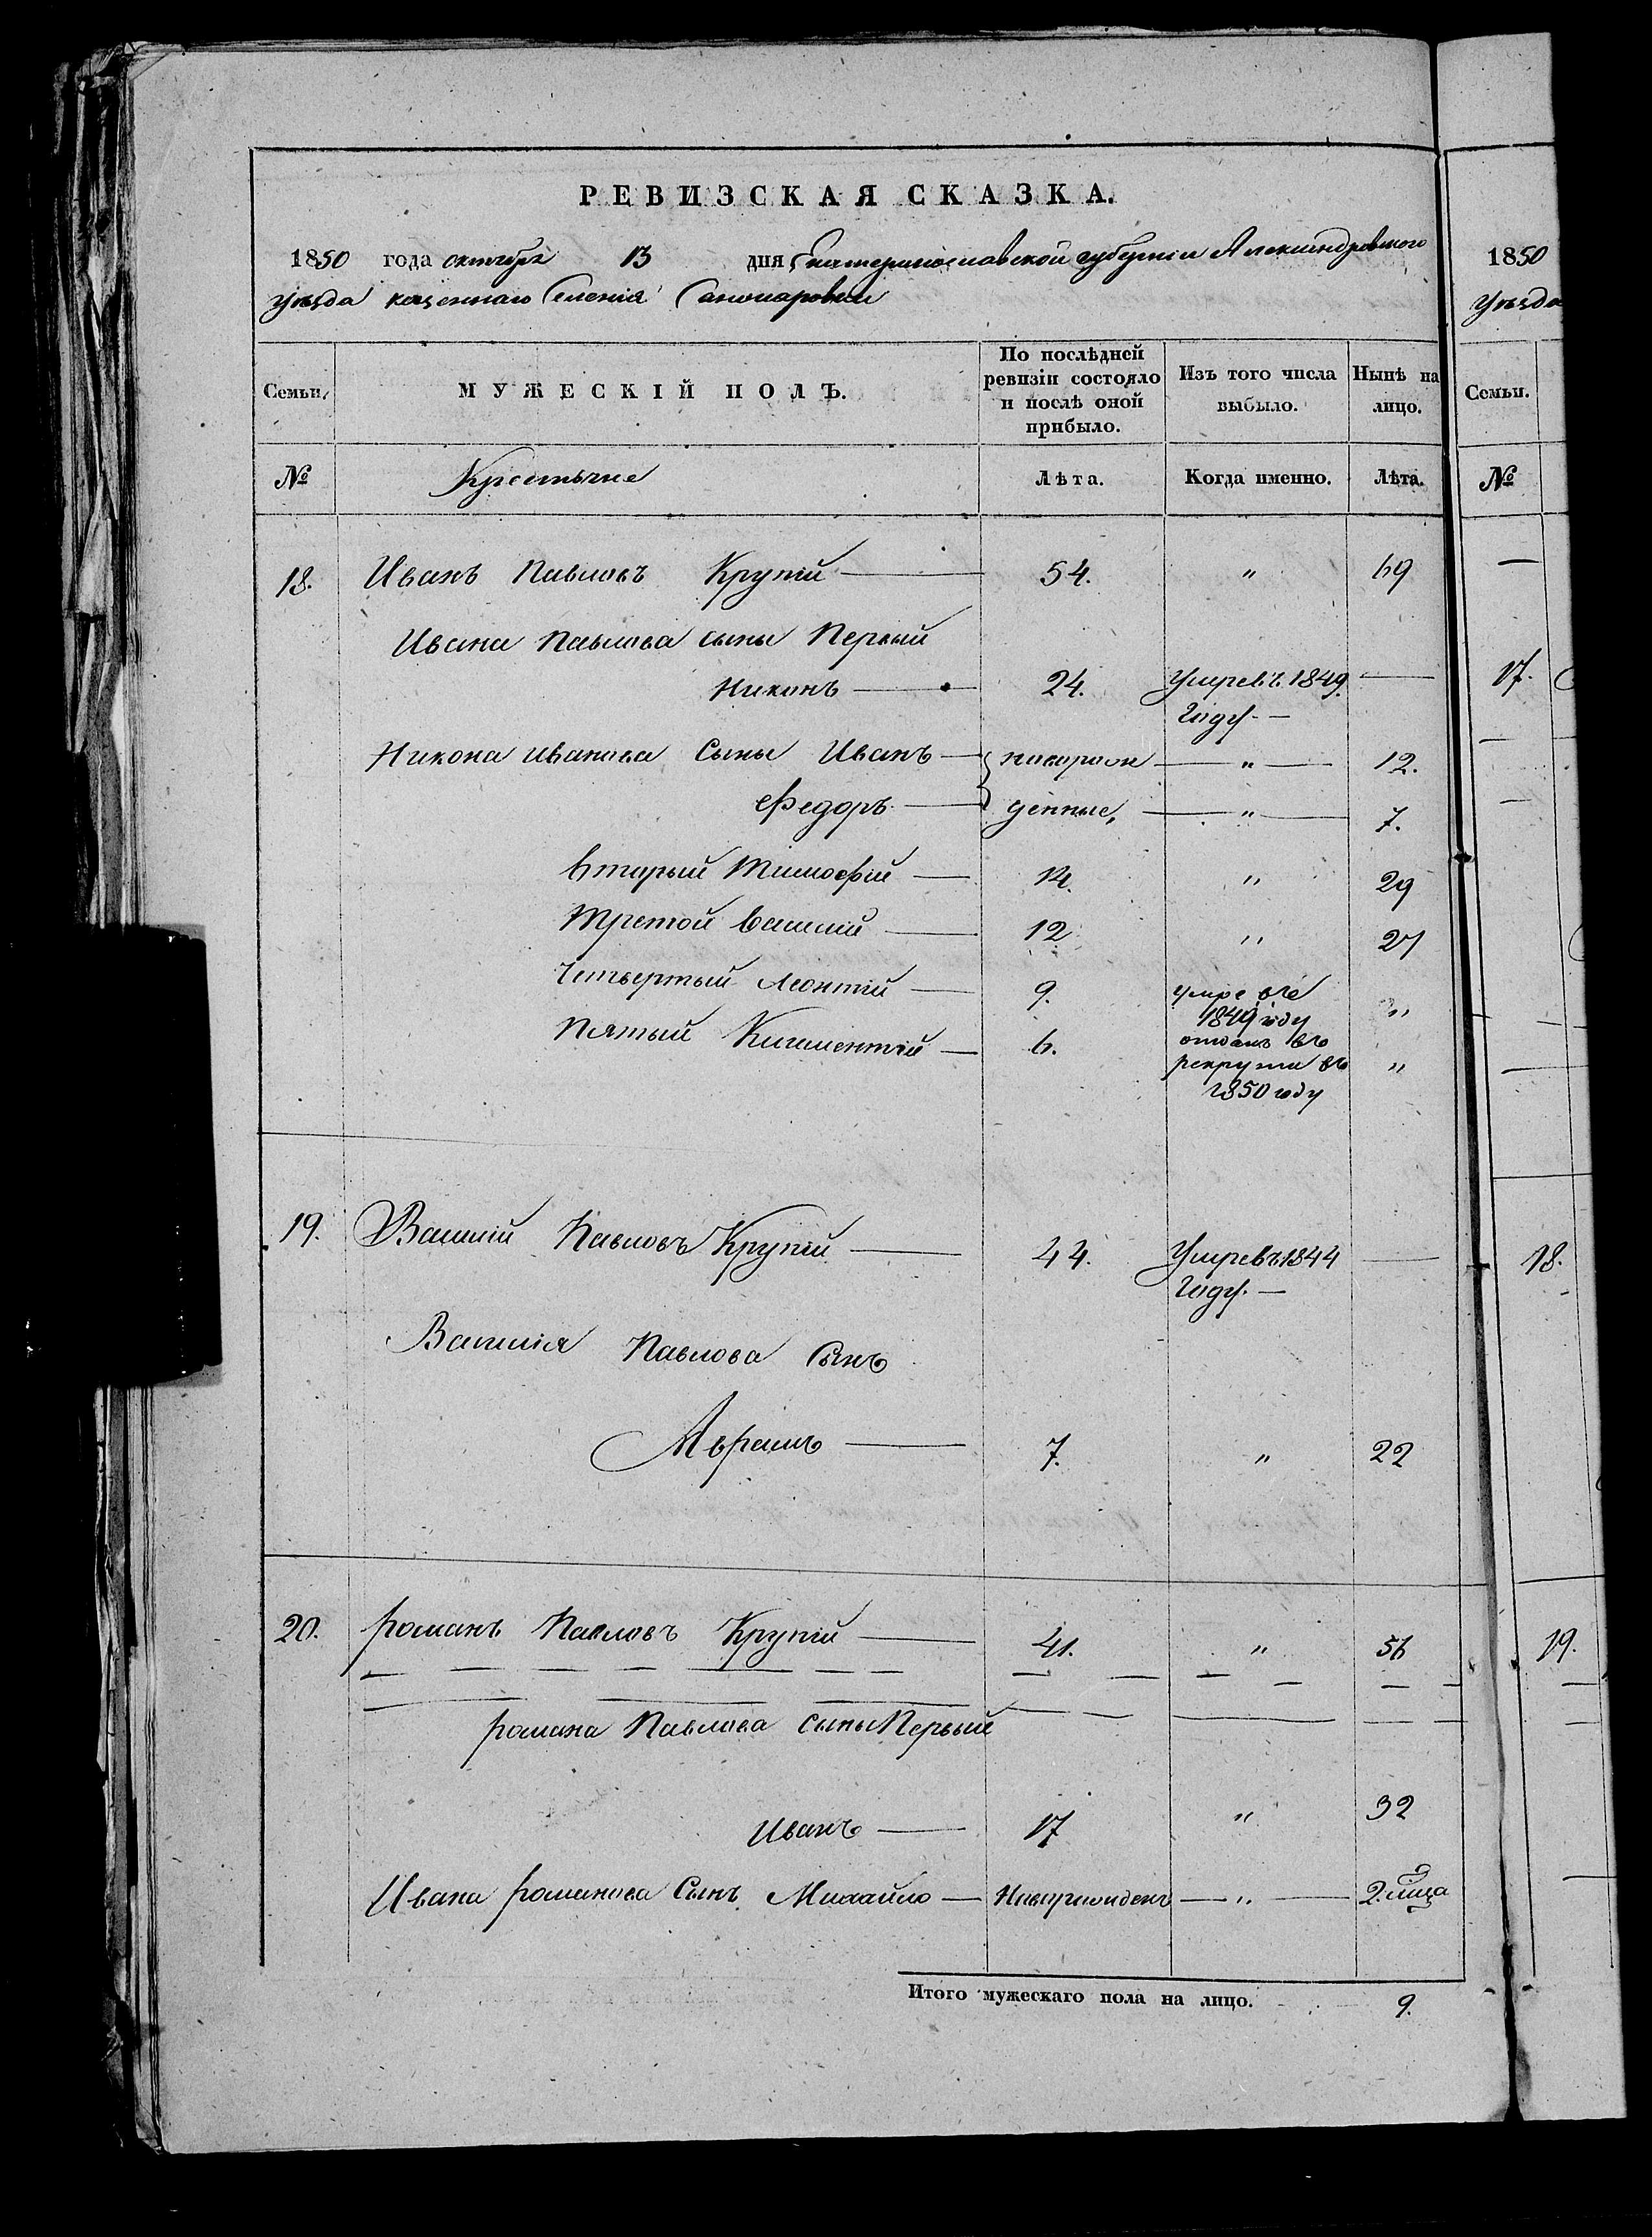 РЕВИЗСКАЯ СКАЗКА.
1850 года октября 13 дня Екатеринославской губернии Александровского
уѣзда казеннаго Селенія
Семьи.
МУЖЕСКІЙ ПОЛЪ.
По послѣдней ревизіи состояло и послѣ оной прибыло.
Изъ того числа выбыло.
Нынѣ на лицо.
№ Крестьяне Лѣта. Когда именно. Лѣта.
18. Иванъ Павловъ Крупій 54. " 69
Ивана Павлова сыны Первый
Никонъ 24. Умре въ 1849
году.
Никона Иванова Сыны Иванъ новорож " 12.
Федоръ денные, " 7.
вторый Тимофій 14. " 29
Третой Василій 12 " 27
Четьвертый Леонтій 9. умре въ "
1849 году
Пятый Климентій 6. отданъ въ "
рекруты въ
1850 году
19. Василій Павловъ Крупій 44. Умре въ 1844
году.
Василія Павлова Сынъ
Аврамъ 7. " 22
20. романъ Павловъ Крупій 41. " 56
романа Павлова сыны Первый
Иванъ 17 " 32
Ивана романова Сынъ Михайло Новорожденъ "
Итого мужескаго пола на лицо. 9.
1850
Уѣзда
Семьи.
№
17.
18.
19.